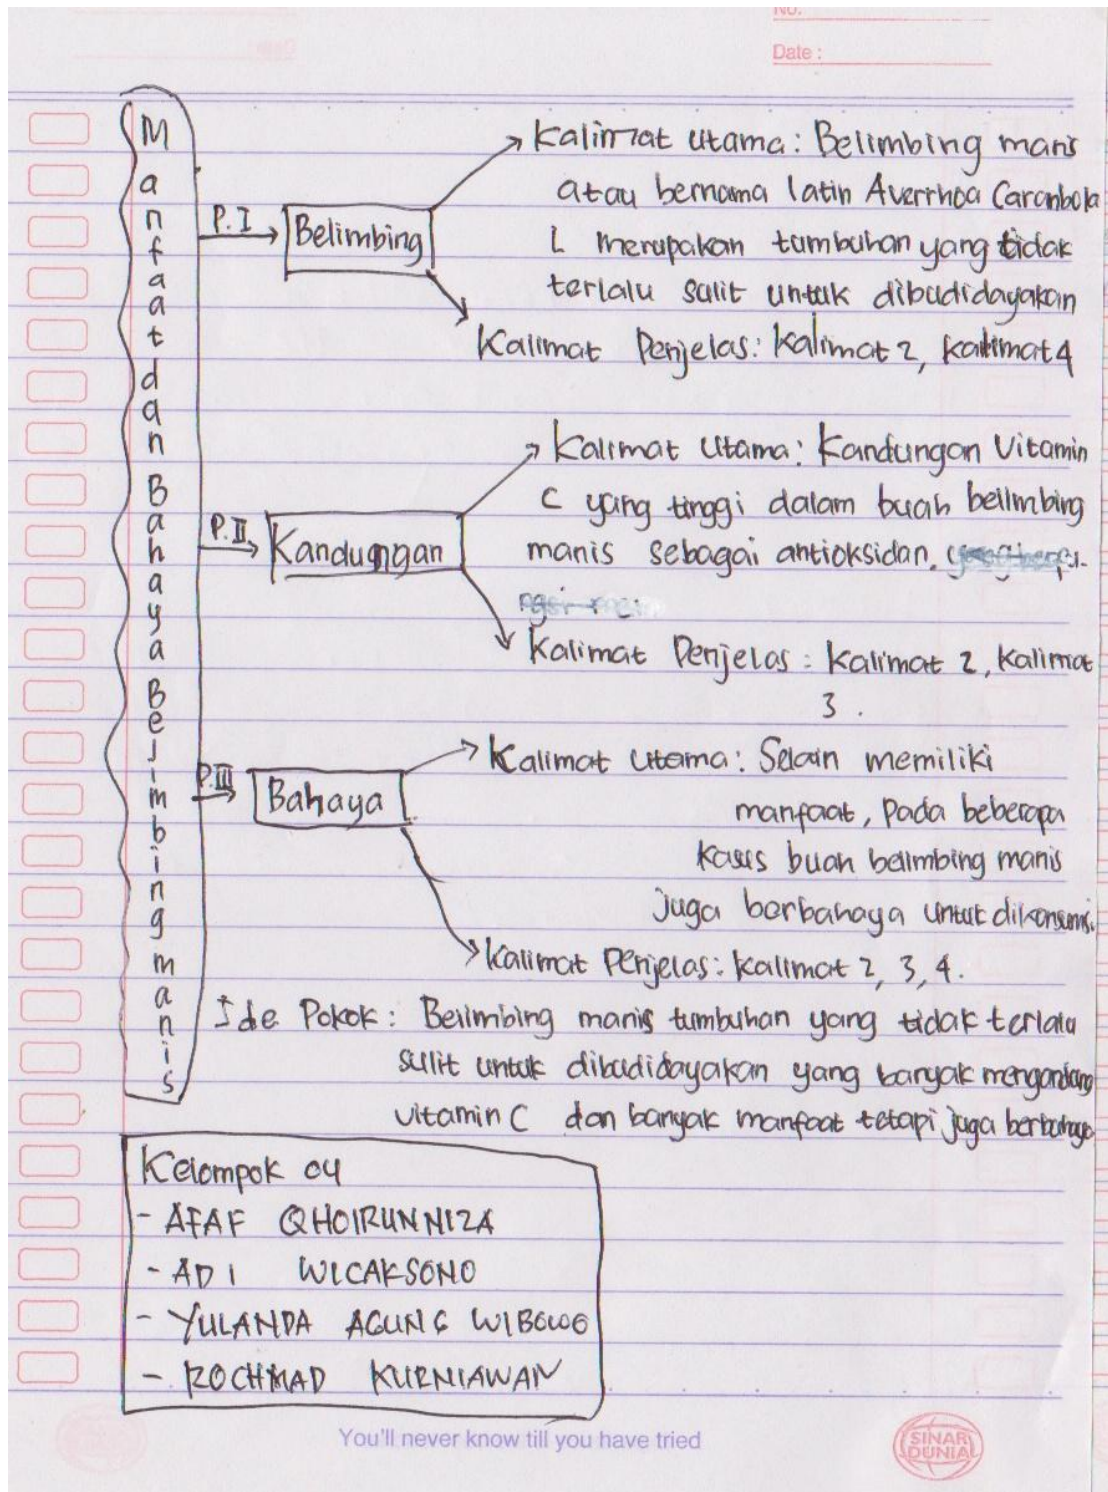 No.
Date :
Manfaat dan Bahaya Belimbing manis
P.I
Belimbing
Kalimat utama : Belimbing manis
atau bernama latin Averrhoa Carambola
L merupakan tumbuhan yang tidak
terlalu sulit untuk dibudidayakan
Kalimat Penjelas : kalimat 2, kalimat 4
P.II
Kandungan
Kalimat Utama : Kandungan Vitamin
C yang tinggi dalam buah belimbing
manis sebagai antioksidan.
Kalimat Penjelas : Kalimat 2, Kalimat
3 .
P.III
Bahaya
Kalimat Utama : Selain memiliki
manfaat, pada beberapa
kasus buah belimbing manis
juga berbahaya untuk dikonsumsi.
Kalimat Penjelas : kalimat 2, 3, 4.
Ide Pokok : Belimbing manis tumbuhan yang tidak terlalu
sulit untuk dibudidayakan yang banyak mengandung
vitamin C dan banyak manfaat tetapi juga berbahaya
Kelompok 04
- AFAF QHOIRUNNIZA
- ADI WICAKSONO
- YULANDA AGUNG WIBOWO
- ROCHMAD KURNIAWAN
You'll never know till you have tried
SINAR
DUNIA